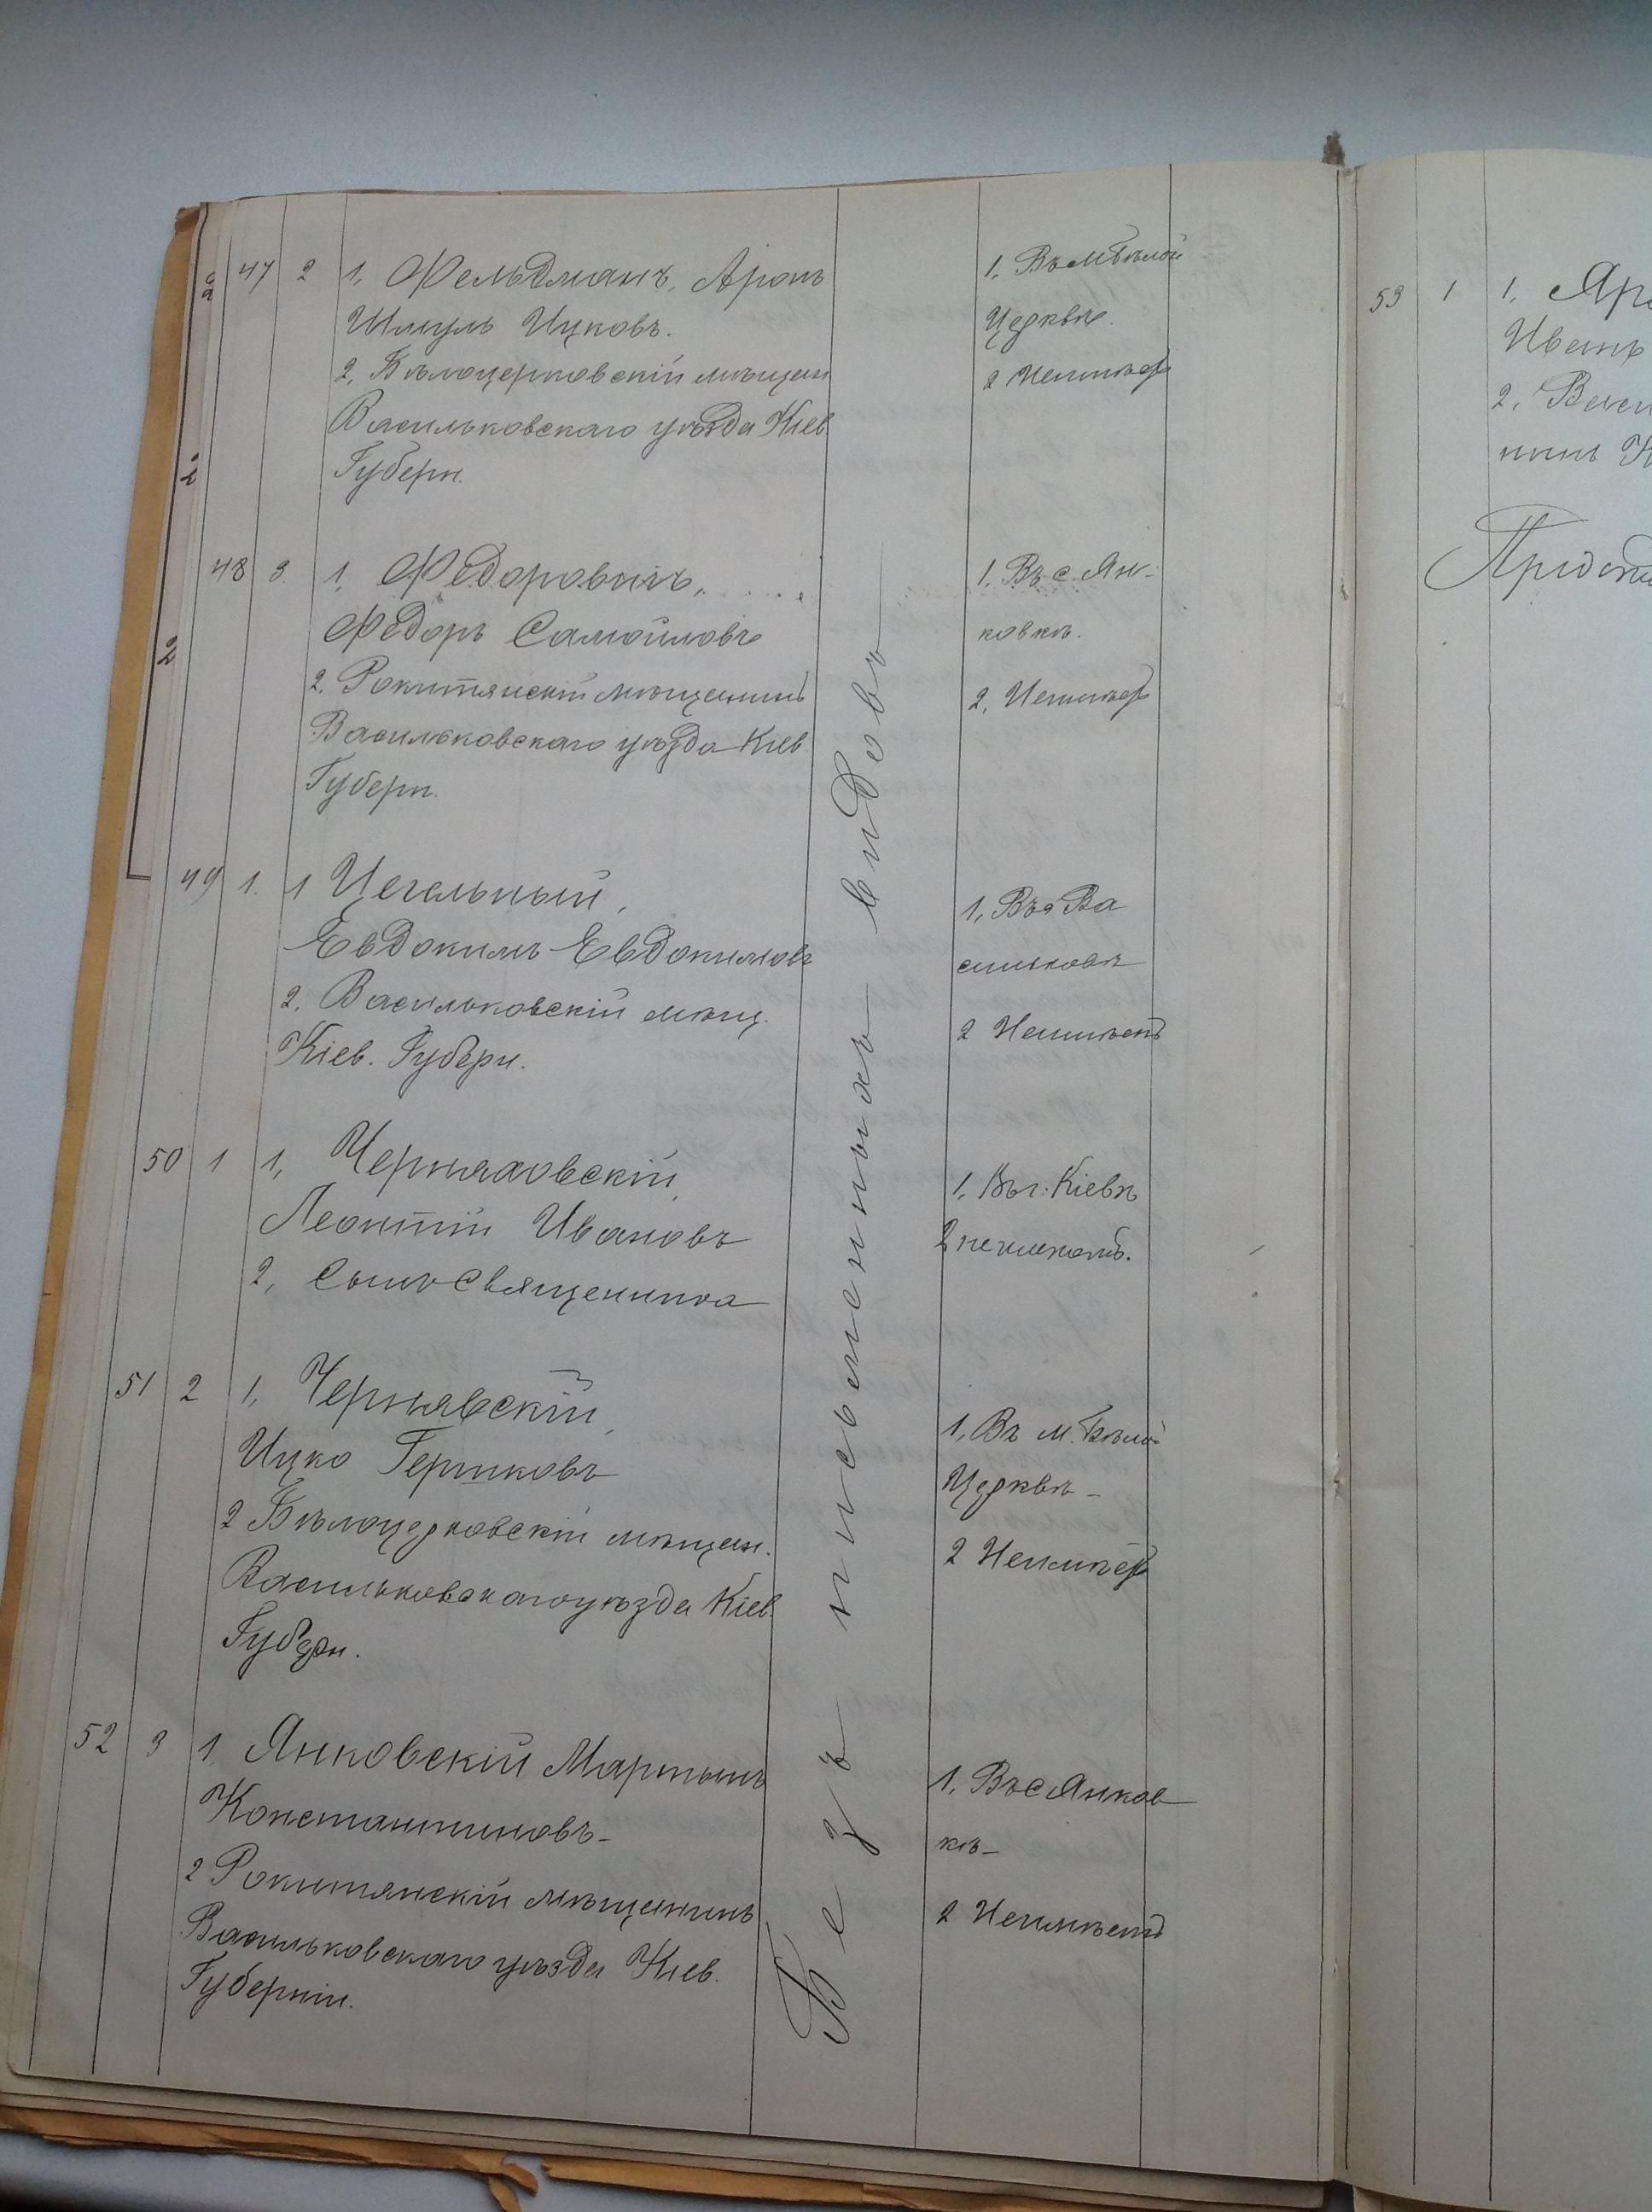 47 2 1, Фельдманъ, Аронъ
Шмуль Ицковъ.
2, Бѣлоцерковскій мѣщан
Васильковскаго уѣзда Кіев.
Губерн.
1, Въ м Бѣлой
Церквѣ.
2 Неимѣет
48 3. 1, Федоровичъ,
Федоръ Самойловъ
2, Рокитянскій мѣщанинъ
Васильковскаго уѣзда Кіев.
Губерн.
1, Въ с. Ян-
ковкѣ.
2, Неимѣет
49 1. 1 Цегельный,
Евдокимъ Евдокимовъ
2, Васильковскій мѣщ.
Кіев. Губерн.
1, Въ г Ва
сильковѣ
2 Неимѣетъ
50 1 1, Черняховскій,
Леонтій Ивановъ
2, Сынъ Священника
1, Въ г. Кіевѣ
2
51 2 1, Чернявскій,
Ицко Гершковъ
2 Бѣлоцерковскій мѣщан.
Васильковскаго уѣзда Кіев.
Губерн.
1, Въ м. Бѣлой
Церквѣ
2 Неимѣет
52 3 1, Янковскій Мартынъ
Константиновъ
2 Рокитянскій мѣщанинъ
Васильковскаго уѣзда Кіев.
Губерніи.
1, Въ с Янков
кѣ
2 Неимѣетъ
Безъ письменныхъ видовъ
53 1 1, Яр
Иванъ
2, Васи
нинъ К